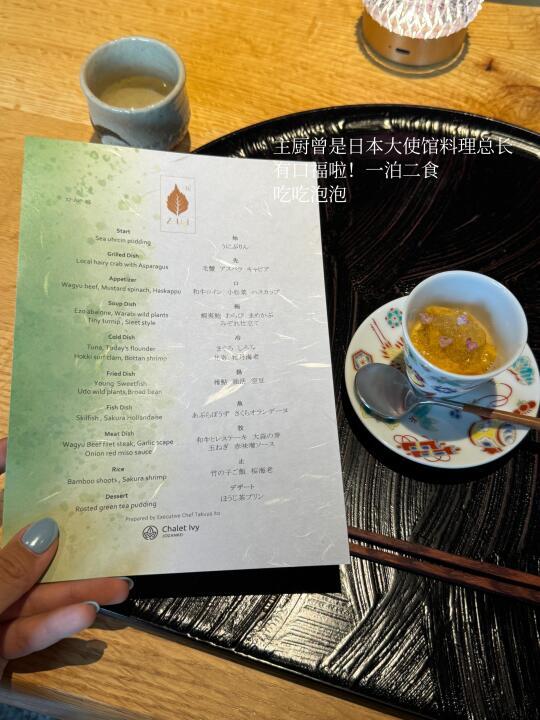 主厨曾是日本大使馆料理总长
有口福啦！一泊二食
吃吃泡泡
ZUI
Start
Sea uhrcin pudding
Grilled Dish
Local hairy crab with Asparagus
Appetizer
Wagyu beef, Mustard spinach, Haskappu
Soup Dish
Ezo abalone, Warabi wild plants
Tiny turnip, Sleet style
Cold Dish
Tuna, Today's flounder
Hokki surf clam, Bottan shrimp
Fried Dish
Young Sweetfish
Udo wild plants, Broad bean
Fish Dish
Skilfish, Sakura Hollandaise
Meat Dish
Wagyu Beef filet steak, Garlic scape
Onion red miso sauce
Rice
Bamboo shoots, Sakura shrimp
Dessert
Rosted green tea pudding
始
うにぷりん
先
毛蟹 アスパラ キャビア
口
和牛ロイン 小松菜 ハスカップ
椀
蝦夷鮑 わらび まめかぶ
みぞれ仕立て
冷
まぐろ
牡丹海老
揚
稚鮎 独活 空豆
魚
あぶらぼうず さくらオランデーヌ
和牛ヒレステーキ 大蒜の芽
玉ねぎ 赤味噌ソース
止
竹の子ご飯 桜海老
デザート
ほうじ茶プリン
Prepared by Executive Chef Takuya Ito
Chalet Ivy
JOZANKEI